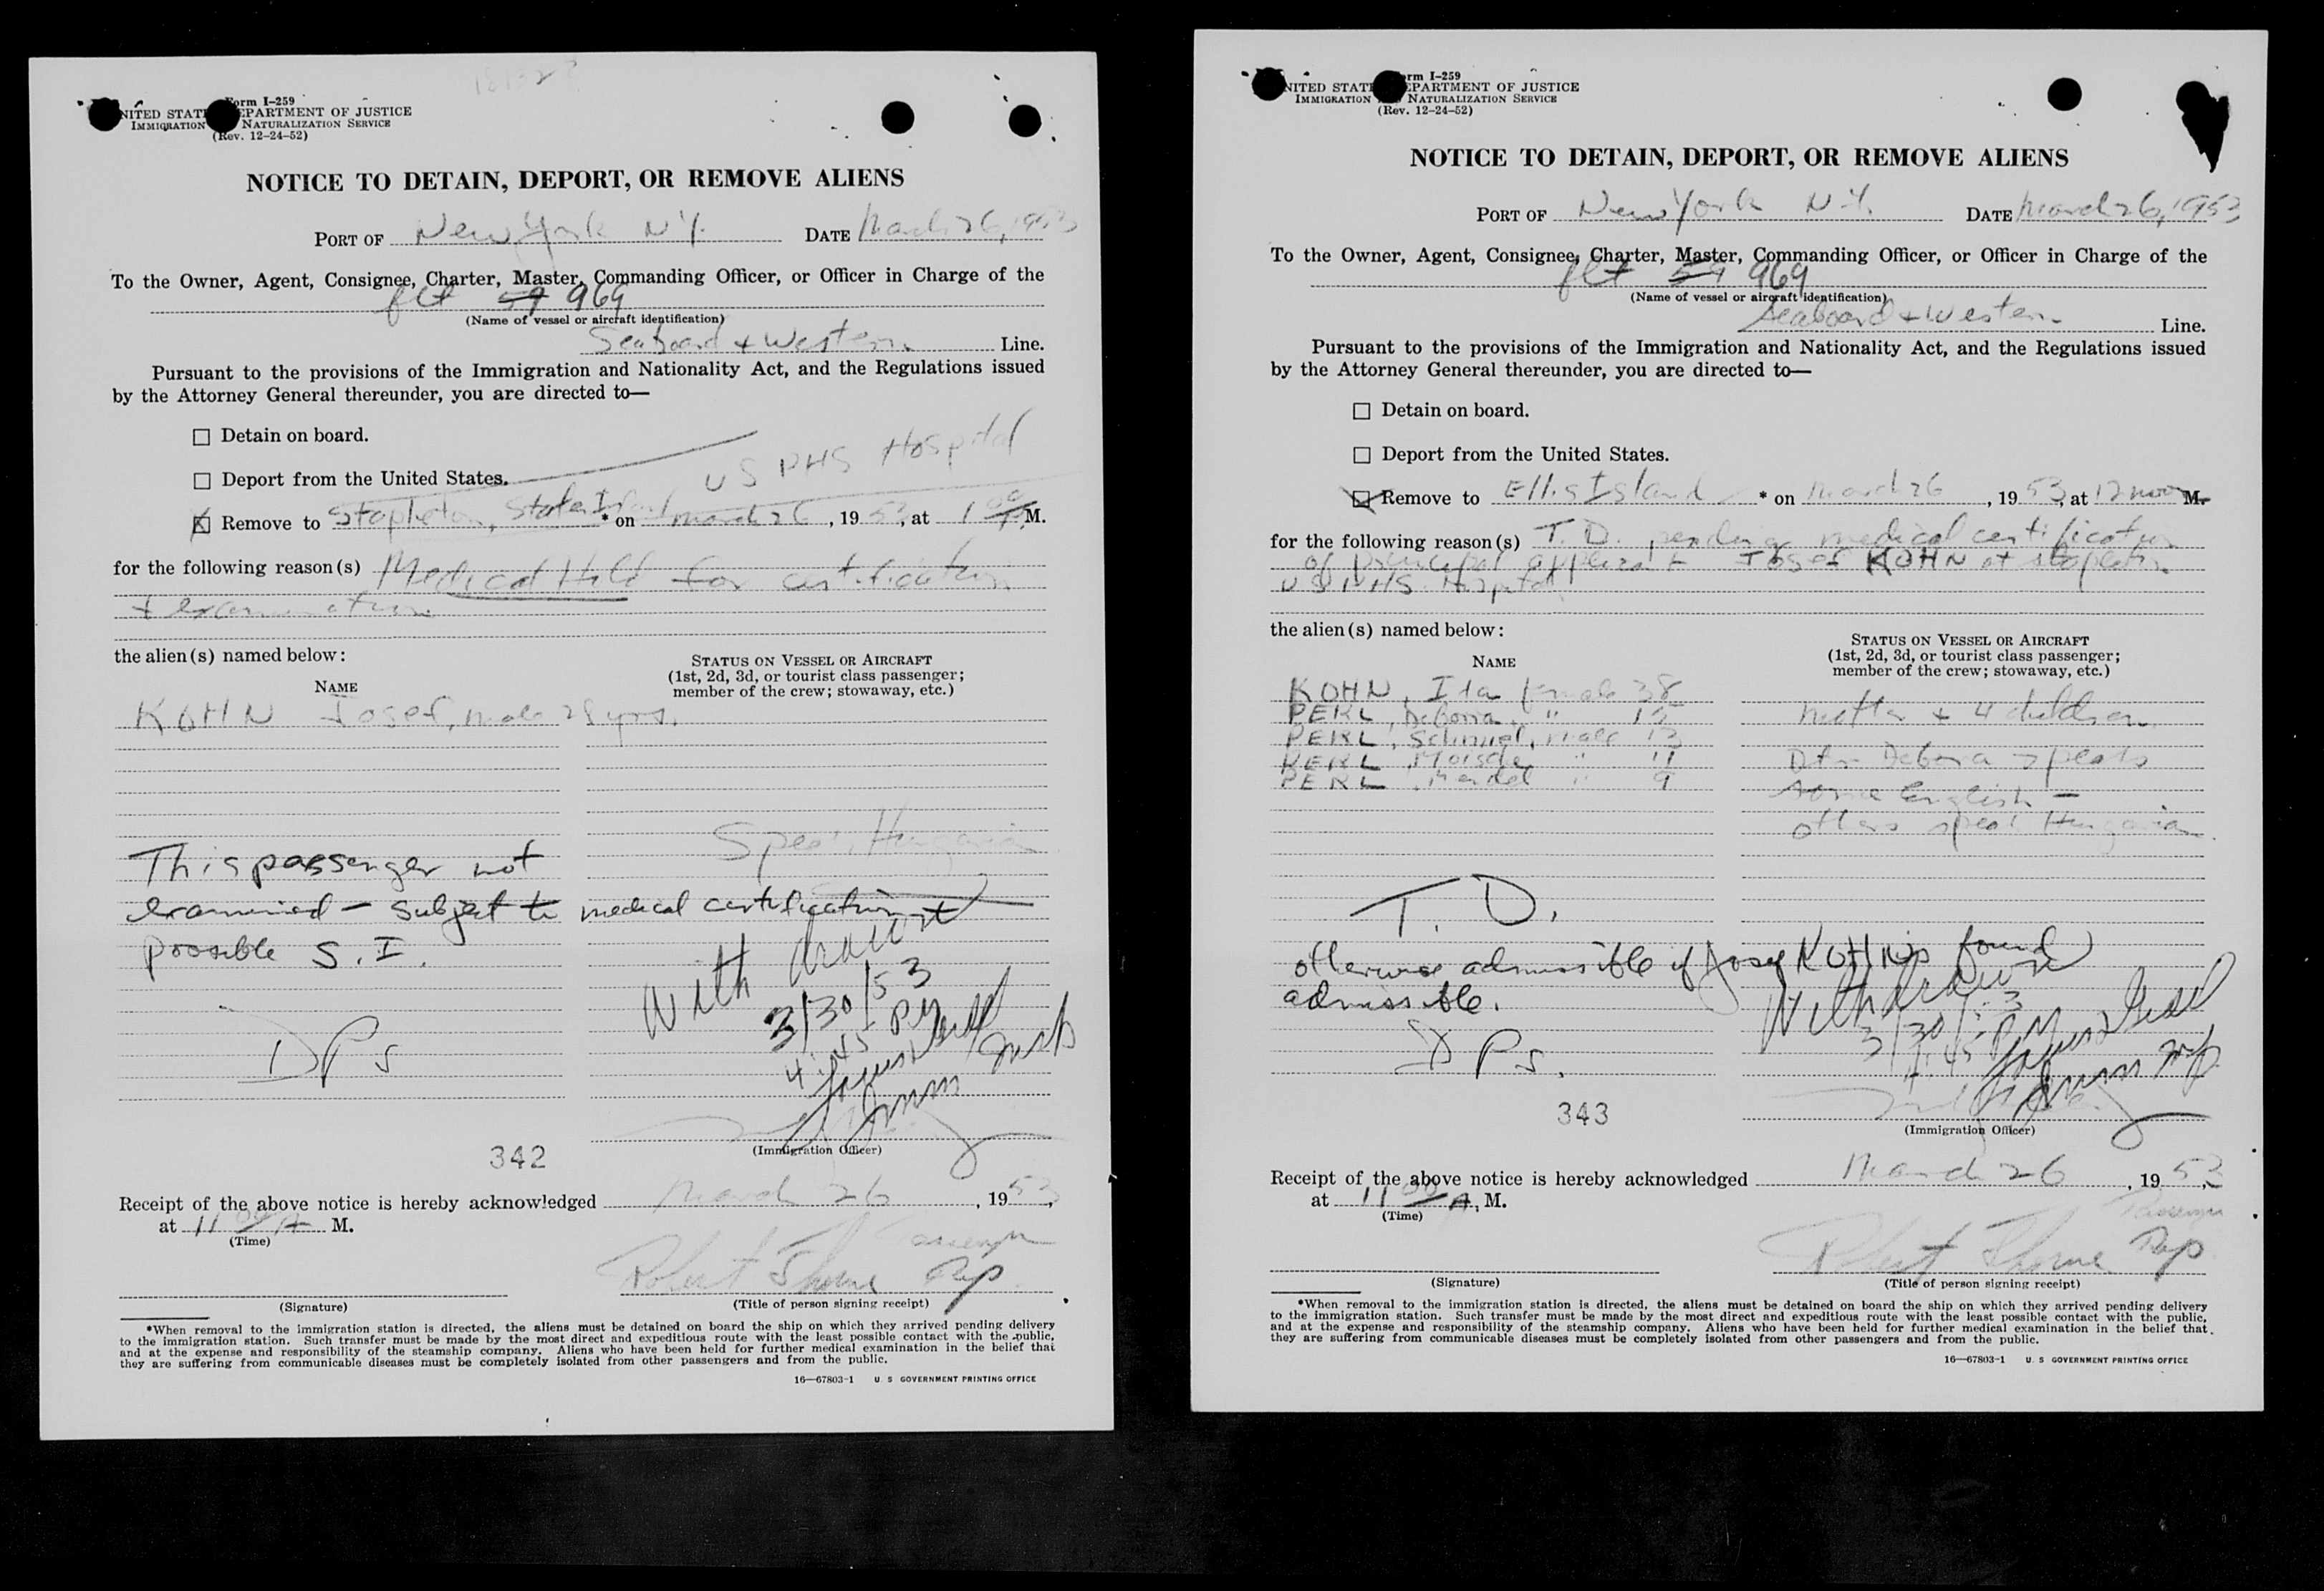 Form I-259
UNITED STATES DEPARTMENT OF JUSTICE
IMMIGRATION NATURALIZATION SERVICE
(Rev. 12-24-52)
NOTICE TO DETAIN, DEPORT, OR REMOVE ALIENS
PORT OF New York N.Y. DATE March 26, 1953
To the Owner, Agent, Consignee, Charter, Master, Commanding Officer, or Officer in Charge of the
flt 59 969
(Name of vessel or aircraft identification)
Seaboard & Western Line.
Pursuant to the provisions of the Immigration and Nationality Act, and the Regulations issued
by the Attorney General thereunder, you are directed to—
Detain on board.
US PHS Hospital
Deport from the United States.
Remove to Stapleton, Staten Island * on March 26, 1953, at 1 00 P.M.
for the following reason(s) Medical Hold for certification
+ examination
the alien(s) named below:
STATUS ON VESSEL OR AIRCRAFT
(1st, 2d, 3d, or tourist class passenger;
member of the crew; stowaway, etc.)
NAME
KOHN Josef, male 28 yrs.
Speaks Hungarian
This passenger not
examined — subject to medical certification
possible S. I.
Withdrawn
3/30/53
4:45 PM
DPS
(Immigration Officer)
342
Receipt of the above notice is hereby acknowledged March 26, 1953,
at 11 00 A M.
(Time)
Passenger
Robert Thorne Rep
(Signature)
(Title of person signing receipt)
*When removal to the immigration station is directed, the aliens must be detained on board the ship on which they arrived pending delivery
to the immigration station. Such transfer must be made by the most direct and expeditious route with the least possible contact with the public,
and at the expense and responsibility of the steamship company. Aliens who have been held for further medical examination in the belief that
they are suffering from communicable diseases must be completely isolated from other passengers and from the public.
16—67803-1 U. S GOVERNMENT PRINTING OFFICE
Form I-259
UNITED STATES DEPARTMENT OF JUSTICE
IMMIGRATION NATURALIZATION SERVICE
(Rev. 12-24-52)
NOTICE TO DETAIN, DEPORT, OR REMOVE ALIENS
PORT OF New York N.Y. DATE March 26, 1953
To the Owner, Agent, Consignee, Charter, Master, Commanding Officer, or Officer in Charge of the
flt 59 969
(Name of vessel or aircraft identification)
Seaboard & Western Line.
Pursuant to the provisions of the Immigration and Nationality Act, and the Regulations issued
by the Attorney General thereunder, you are directed to—
Detain on board.
Deport from the United States.
Remove to Ellis Island * on March 26, 1953, at 12 noon M.
for the following reason(s) T. D. pending medical certification
of principal applicant Josef KOHN at Stapleton
USPHS Hospital
the alien(s) named below:
STATUS ON VESSEL OR AIRCRAFT
(1st, 2d, 3d, or tourist class passenger;
member of the crew; stowaway, etc.)
NAME
KOHN, Ida female 38
PERL, Debora, " 15
mother + 4 children
PERL, Schmuel, male 13
PERL, Moische " 11
Dtr Debora speaks
PERL, Mendel " 9
some English —
others speak Hungarian
T. D.
otherwise admissible if Josef KOHN is found
admissible.
Withdrawn
3/30/53
4:45 PM
DPS.
343
(Immigration Officer)
Receipt of the above notice is hereby acknowledged March 26, 1953,
at 11 00 A, M.
(Time)
Passenger
Robert Thorne Rep
(Signature)
(Title of person signing receipt)
*When removal to the immigration station is directed, the aliens must be detained on board the ship on which they arrived pending delivery
to the immigration station. Such transfer must be made by the most direct and expeditious route with the least possible contact with the public,
and at the expense and responsibility of the steamship company. Aliens who have been held for further medical examination in the belief that
they are suffering from communicable diseases must be completely isolated from other passengers and from the public.
16—67803-1 U. S GOVERNMENT PRINTING OFFICE